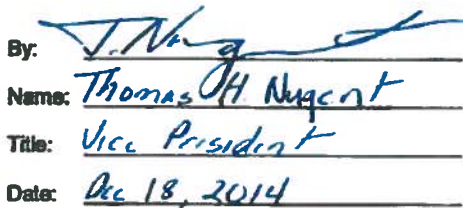 By: T. Nugent
Name: Thomas H Nugent
Title: Vice President
Date: Dec 18, 2014